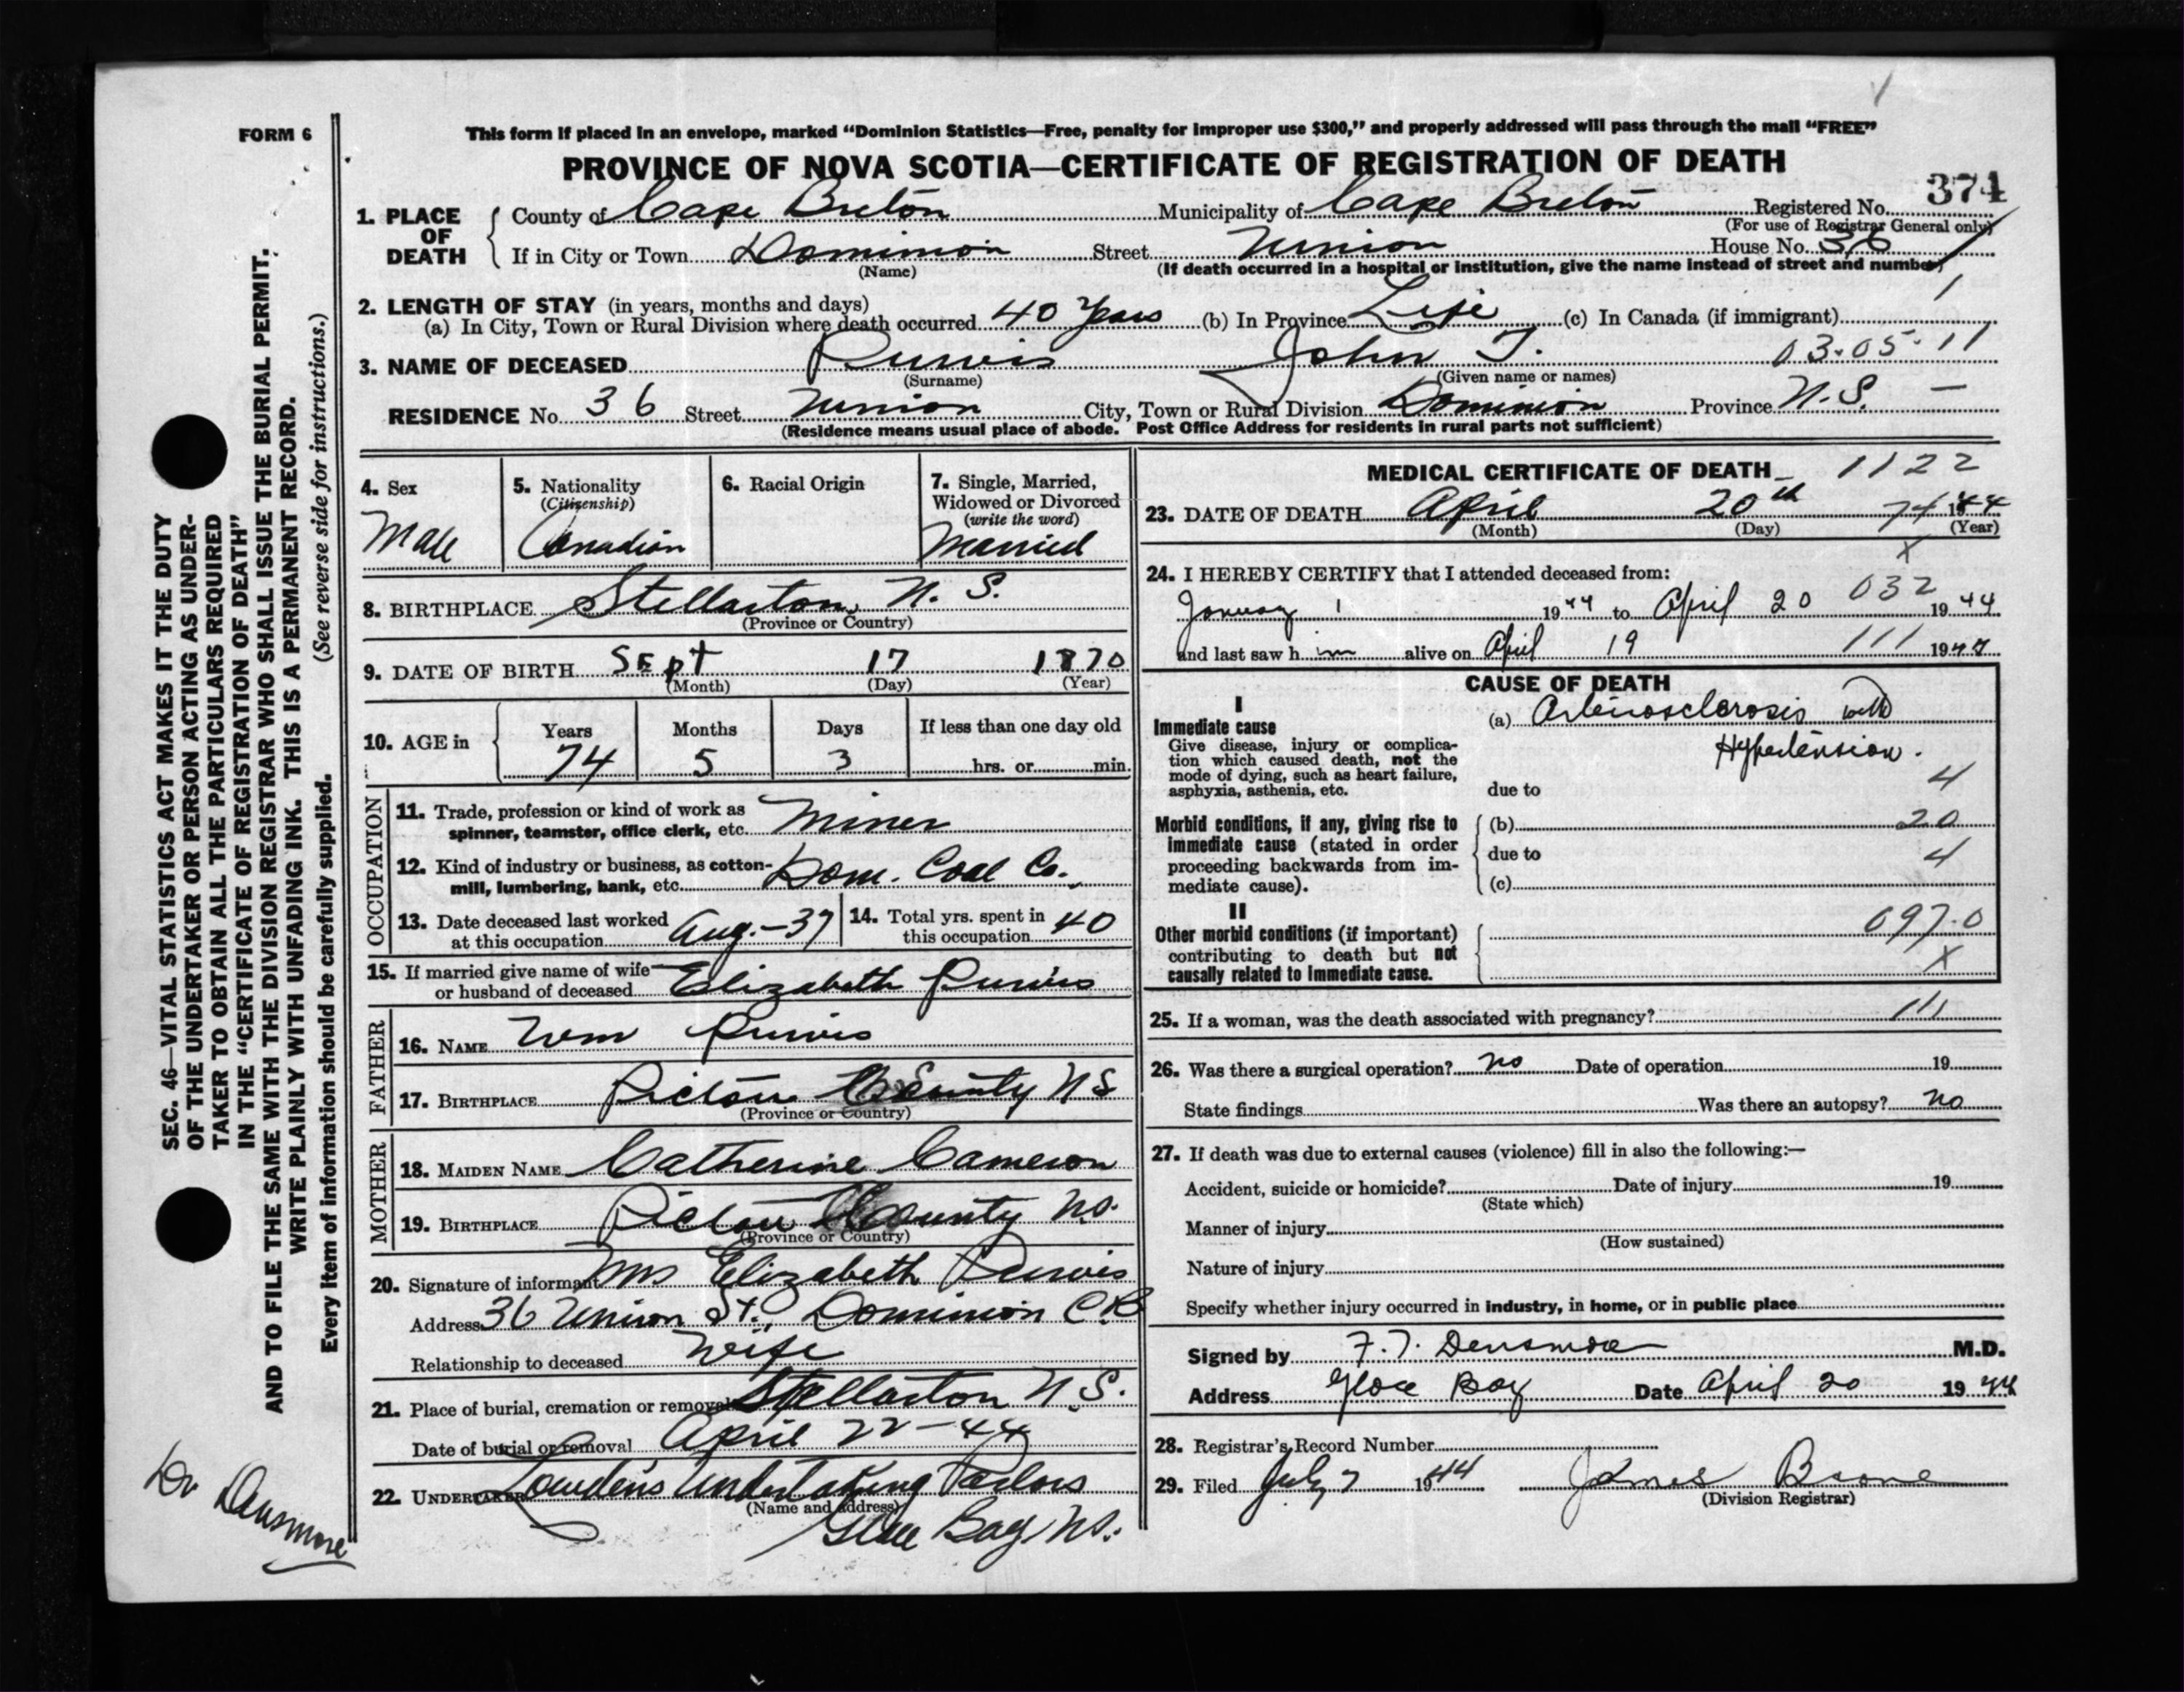 FORM 6
This form if placed in an envelope, marked “Dominion Statistics—Free, penalty for improper use $300,” and properly addressed will pass through the mail “FREE”
PROVINCE OF NOVA SCOTIA—CERTIFICATE OF REGISTRATION OF DEATH
374
1. PLACE OF DEATH County of Cape Breton Municipality of Cape Breton Registered No.
(For use of Registrar General only)
If in City or Town Dominion Street Union House No. 36
(Name) (If death occurred in a hospital or institution, give the name instead of street and number)
2. LENGTH OF STAY (in years, months and days) 1
(a) In City, Town or Rural Division where death occurred 40 Years (b) In Province Life (c) In Canada (if immigrant)
3. NAME OF DECEASED Purvis John T. 03-05-11
(Surname) (Given name or names)
RESIDENCE No. 36 Street Union City, Town or Rural Division Dominion Province N.S. —
(Residence means usual place of abode. Post Office Address for residents in rural parts not sufficient)
4. Sex Male
5. Nationality (Citizenship) Canadian
6. Racial Origin
7. Single, Married, Widowed or Divorced (write the word) Married
8. BIRTHPLACE Stellarton, N. S.
(Province or Country)
9. DATE OF BIRTH Sept 17 1870
(Month) (Day) (Year)
10. AGE in Years Months Days If less than one day old
74 5 3 hrs. or min.
OCCUPATION
11. Trade, profession or kind of work as spinner, teamster, office clerk, etc. Miner
12. Kind of industry or business, as cotton-mill, lumbering, bank, etc. Dom. Coal Co.
13. Date deceased last worked at this occupation Aug.-37
14. Total yrs. spent in this occupation 40
15. If married give name of wife or husband of deceased Elizabeth Purvis
FATHER
16. NAME Wm Purvis
17. BIRTHPLACE Pictou County N S
(Province or Country)
MOTHER
18. MAIDEN NAME Catherine Cameron
19. BIRTHPLACE Pictou County N.S.
(Province or Country)
20. Signature of informant Mrs Elizabeth Purvis
Address 36 Union St., Dominion C.B
Relationship to deceased Wife
21. Place of burial, cremation or removal Stellarton N.S.
Date of burial or removal April 22-44
22. UNDERTAKER Undertaking Parlors
(Name and address)
Glace Bay N.S.
MEDICAL CERTIFICATE OF DEATH 1122
23. DATE OF DEATH April 20th 74 1944
(Month) (Day) (Year)
X
24. I HEREBY CERTIFY that I attended deceased from:
January 1 1944 to April 20 032 1944
and last saw him alive on April 19 111 1944
CAUSE OF DEATH
I
Immediate cause (a) Arteriosclerosis with
Hypertension.
Give disease, injury or complication which caused death, not the mode of dying, such as heart failure, asphyxia, asthenia, etc.
due to 4
Morbid conditions, if any, giving rise to immediate cause (stated in order proceeding backwards from immediate cause).
(b) 20
due to 4
(c)
II
Other morbid conditions (if important) contributing to death but not causally related to immediate cause.
097.0
X
25. If a woman, was the death associated with pregnancy? 111
26. Was there a surgical operation? no Date of operation 19
State findings Was there an autopsy? no
27. If death was due to external causes (violence) fill in also the following:—
Accident, suicide or homicide? Date of injury 19
(State which)
Manner of injury
(How sustained)
Nature of injury
Specify whether injury occurred in industry, in home, or in public place
Signed by F. T. Densmore M.D.
Address Glace Bay Date April 20 1944
28. Registrar's Record Number
29. Filed July 7 1944 James Boone
(Division Registrar)
SEC. 46—VITAL STATISTICS ACT MAKES IT THE DUTY
OF THE UNDERTAKER OR PERSON ACTING AS UNDER-
TAKER TO OBTAIN ALL THE PARTICULARS REQUIRED
IN THE “CERTIFICATE OF REGISTRATION OF DEATH”
AND TO FILE THE SAME WITH THE DIVISION REGISTRAR WHO SHALL ISSUE THE BURIAL PERMIT.
WRITE PLAINLY WITH UNFADING INK. THIS IS A PERMANENT RECORD.
Every item of information should be carefully supplied. (See reverse side for instructions.)
Dr Densmore